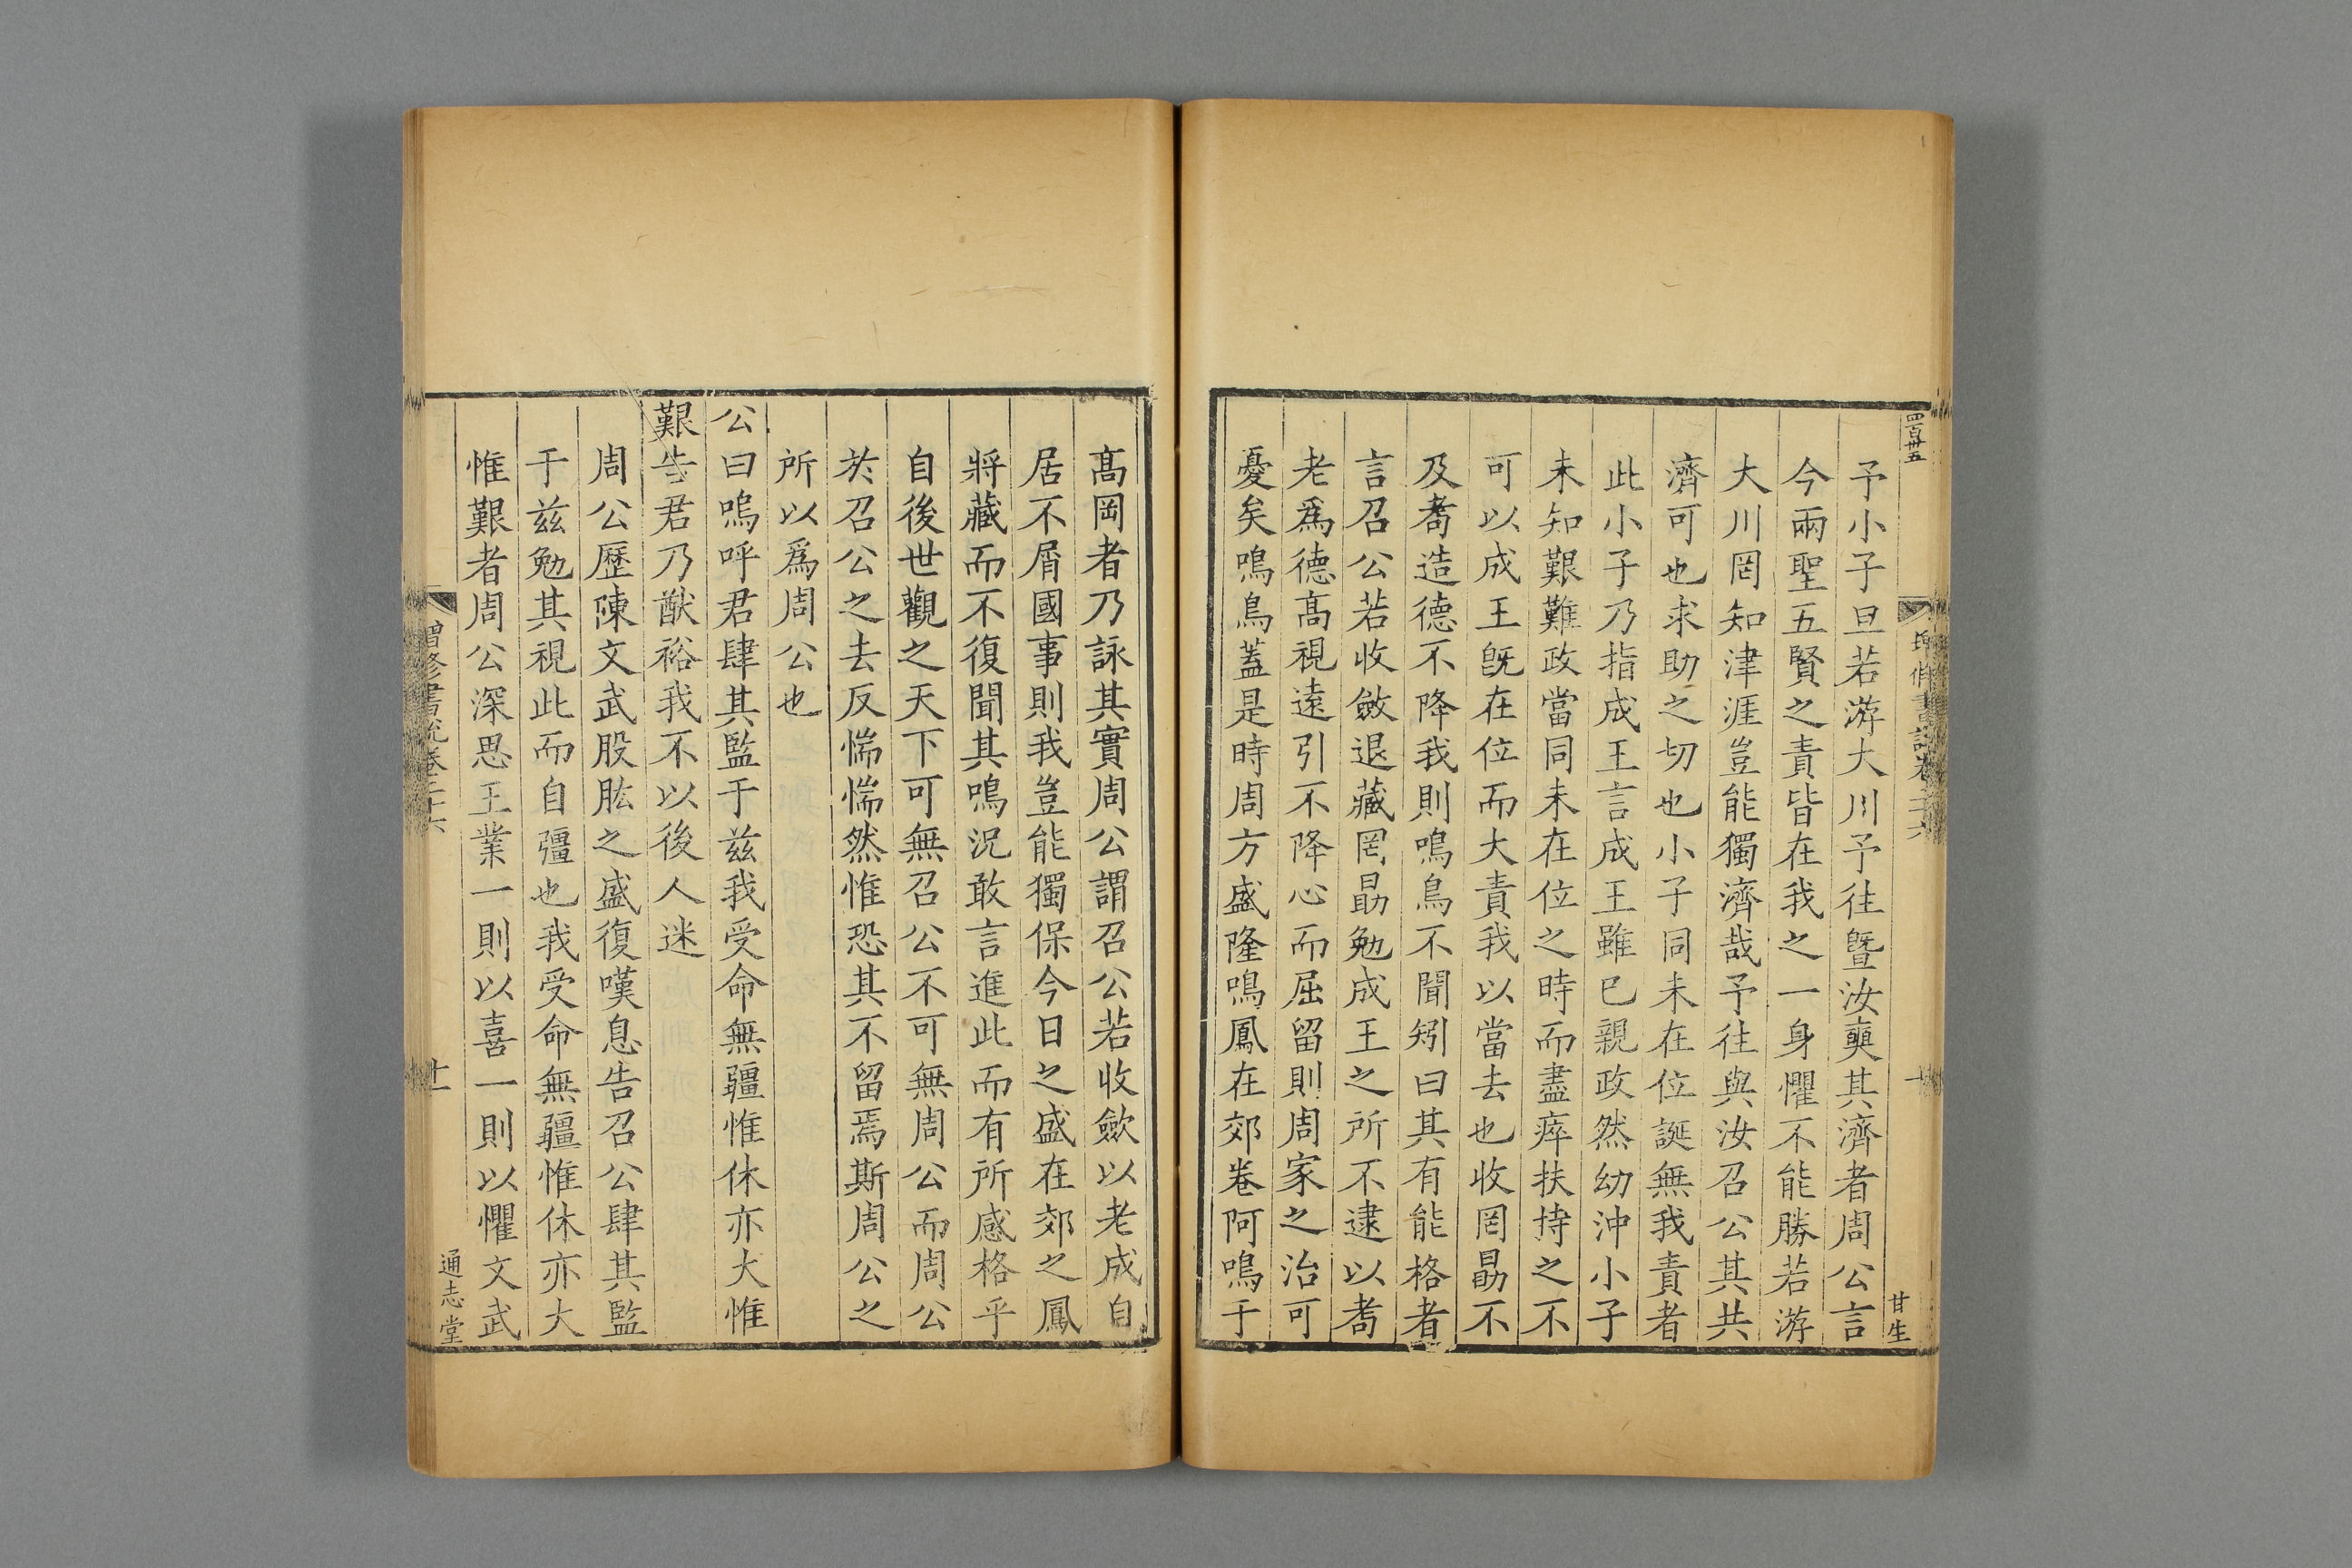 四百卅五
予小子旦若游大川予往曁汝奭其濟者周公言
今兩聖五賢之責皆在我之一身懼不能勝若游
大川罔知津涯豈能獨濟哉予往與汝召公其共
濟可也求助之切也小子同未在位誕無我責者
此小子乃指成王言成王雖已親政然幼沖小子
未知艱難政當同未在位之時而盡瘁扶持之不
可以成王旣在位而大責我以當去也收罔勗不
及耇造德不降我則鳴鳥不聞矧曰其有能格者
言召公若收斂退藏罔勗勉成王之所不逮以耇
老爲德高視遠引不降心而屈留則周家之治可
憂矣鳴鳥蓋是時周方盛隆鳴鳳在郊卷阿鳴于
甘生
高岡者乃詠其實周公謂召公若收歛以老成自
居不屑國事則我豈能獨保今日之盛在郊之鳳
將藏而不復聞其鳴況敢言進此而有所感格乎
自後世觀之天下可無召公不可無周公而周公
於召公之去反惴惴然惟恐其不留焉斯周公之
所以爲周公也
公曰嗚呼君肆其監于兹我受命無疆惟休亦大惟
艱告君乃猷裕我不以後人迷
周公歷陳文武股肱之盛復嘆息告召公肆其監
于兹勉其視此而自彊也我受命無疆惟休亦大
惟艱者周公深思王業一則以喜一則以懼文武
增修書說卷二十六
十一
通志堂